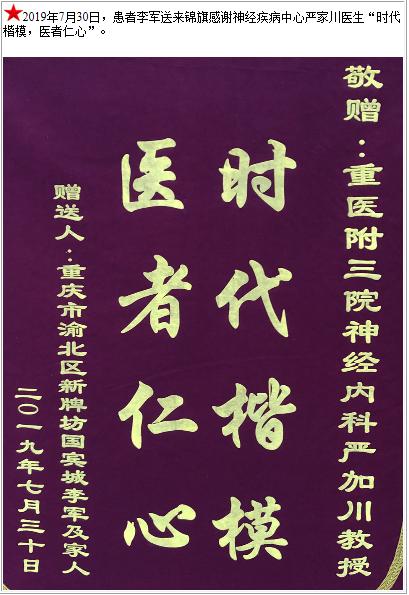 2019年7月30日，患者李军送来锦旗感谢神经疾病中心严家川医生“时代
楷模，医者仁心”。
敬赠：重医附三院神经内科严加川教授
时代楷模
医者仁心
赠送人：重庆市渝北区新牌坊国宾城李军及家人
二〇一九年七月三十日